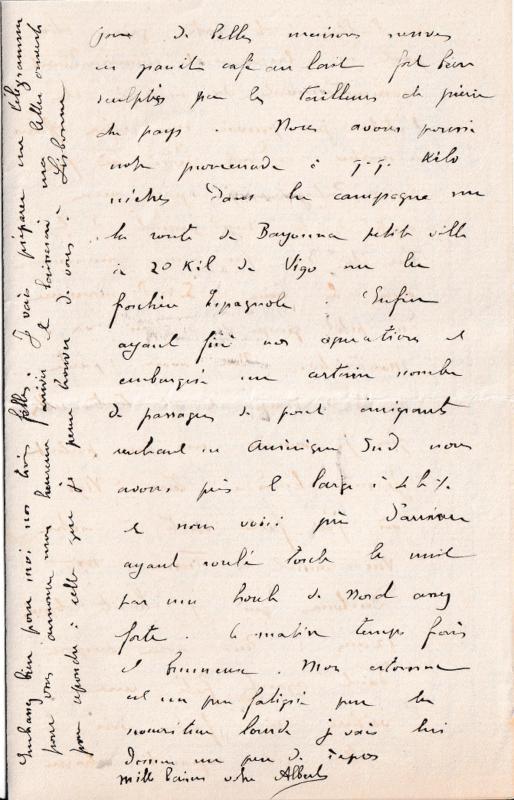 de belles maisons
en granit café au lait fort bien
sculptées par les tailleurs de pierre
du pays. Nous avons poussé
notre promenade à qq. Kilo
mètres dans la campagne sur
la route de Bayonna petite ville
à 20 Kil de Vigo sur la
frontière Espagnole. Enfin
ayant fini nos opérations et
embarqué un certain nombre
de passagers de pont émigrants
en Amérique Sud nous
avons pris le large à 4 h ½
et nous voici près d'arriver
ayant roulé toute la nuit
par une houle de Nord assez
forte. Ce matin temps frais
et brumeux. Mon estomac
est un peu fatigué par la
nourriture lourde je vais lui
donner un peu de repos
mille baisers votre Albert
Embrassez bien pour moi nos trois filles. Je vais préparer un télégramme
pour vous annoncer mon heureuse arrivée et laisserai ma lettre ouverte
pour répondre à celle que je peux trouver de vous à Lisbonne